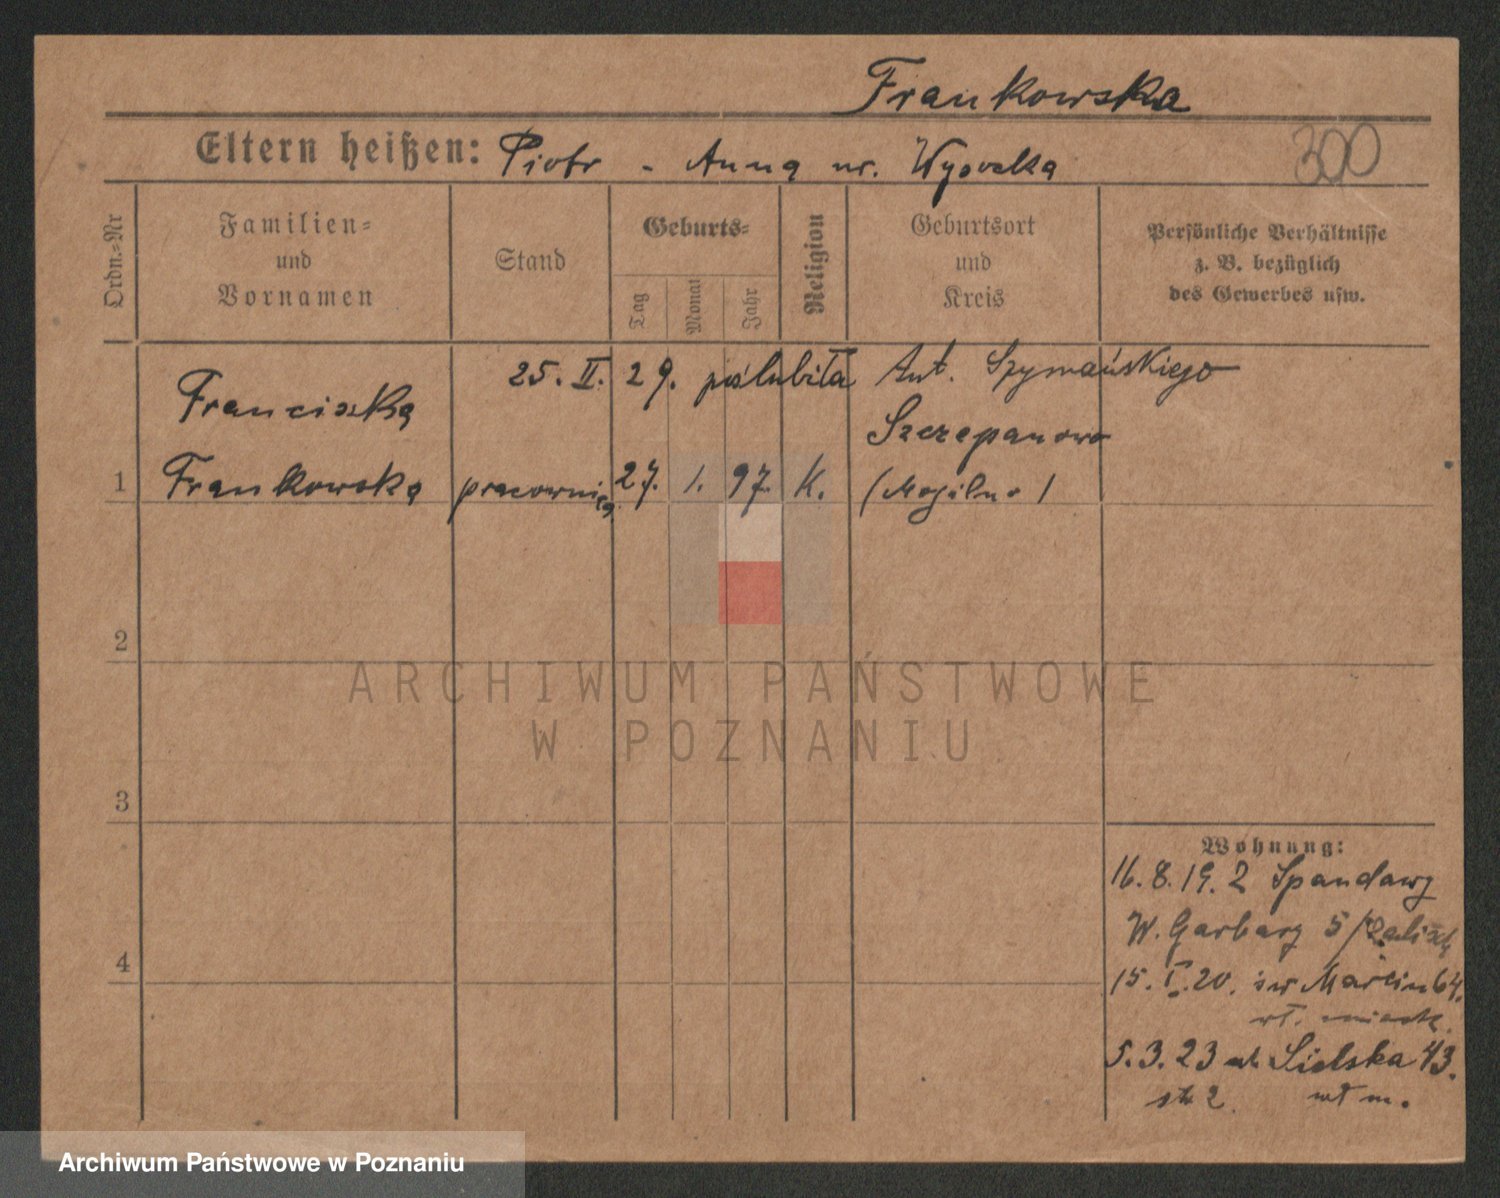 Frankowska
Eltern heißen: Piotr - Anna ur. Wysocka
300
Ordn.=Nr
Familien=
und
Vornamen
Stand
Geburts=
Tag
Monat
Jahr
Religion
Geburtsort
und
Kreis
Persönliche Verhältnisse
z. B. bezüglich
des Gewerbes usw.
25. II. 29. poślubiła Ant. Szymańskiego
Franciszka
Szczepanowo
1 Frankowska pracownica 27. 1. 97. K. (Mogilno)
2
ARCHIWUM PAŃSTWOWE
W POZNANIU
3
Wohnung:
16.8.19. z Spandawy
W. Garbary 5
4
15.I.20. św Marcin 64.
wł. mieszk.
5.3.23 ul. Sielska 43.
wł m.
Archiwum Państwowe w Poznaniu